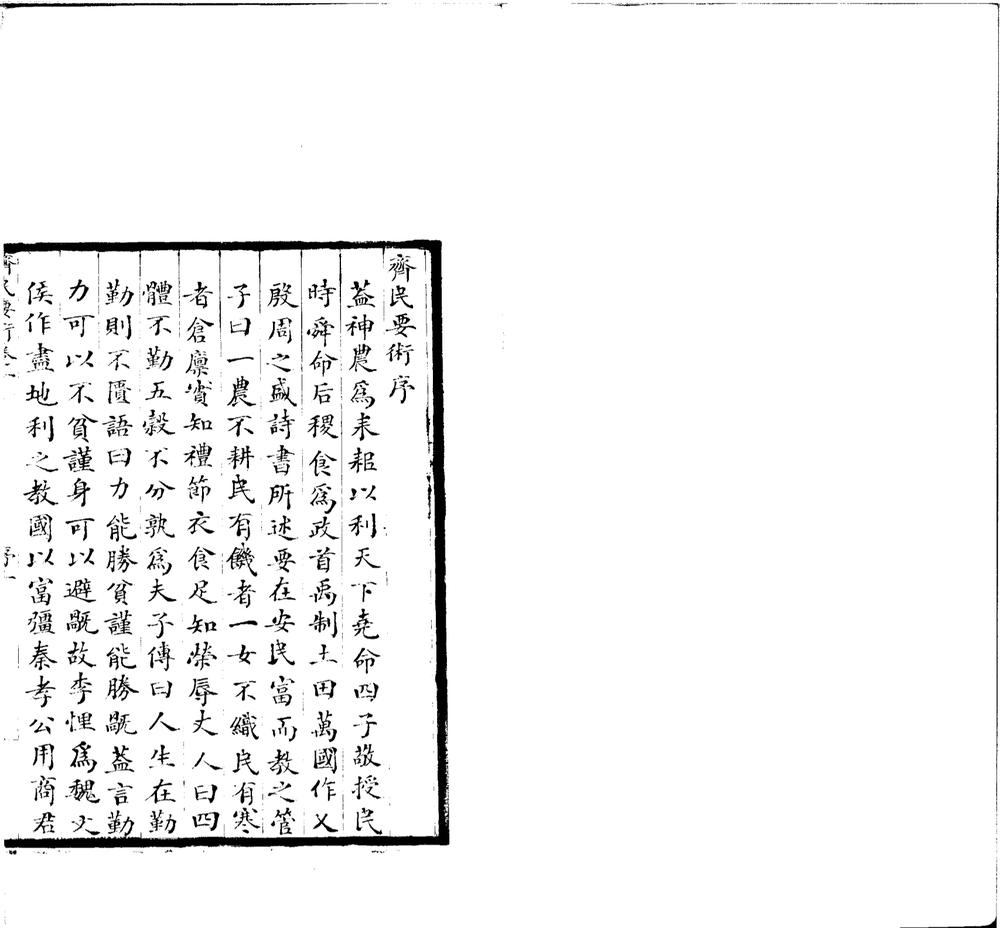 齊民要術序
葢神農爲耒耜以利天下堯命四子敬授民
時舜命后稷食爲政首禹制土田萬國作乂
殷周之盛詩書所述要在安民富而教之管
子曰一農不耕民有饑者一女不織民有寒
者倉廩實知禮節衣食足知榮辱丈人曰四
體不勤五榖不分孰爲夫子傳曰人生在勤
勤則不匱語曰力能勝貧謹能勝禍葢言勤
力可以不貧謹身可以避禍故李悝爲魏文
侯作盡地利之教國以富彊秦孝公用商君
齊民要術卷
序一